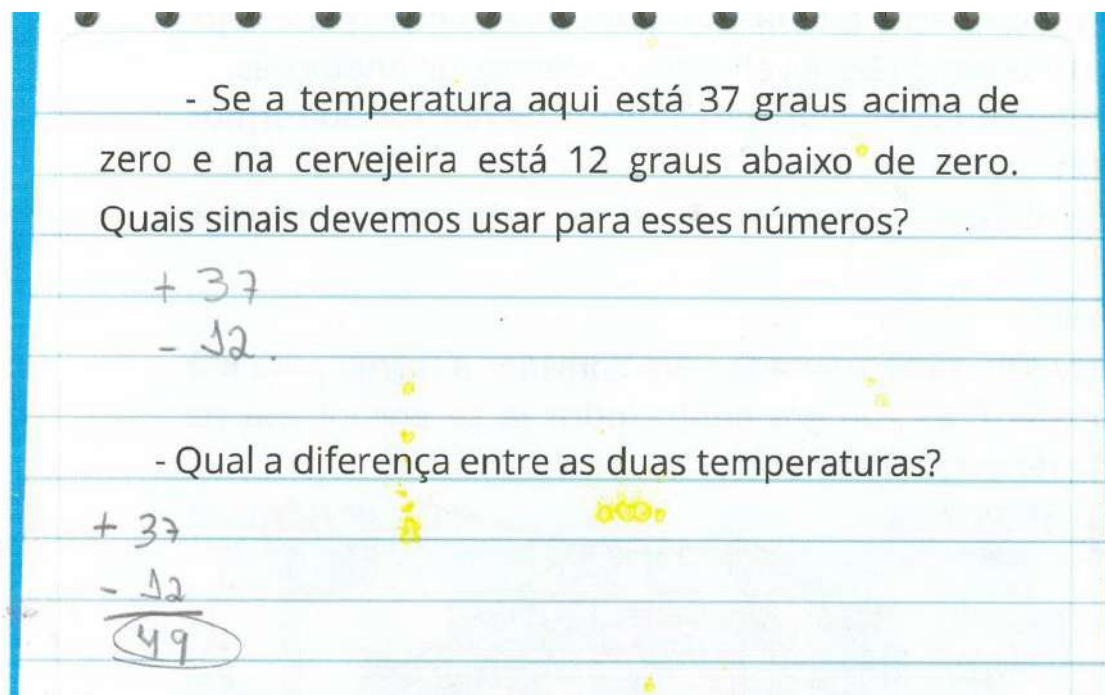 - Se a temperatura aqui está 37 graus acima de
zero e na cervejeira está 12 graus abaixo de zero.
Quais sinais devemos usar para esses números?
+ 37
- 12.
- Qual a diferença entre as duas temperaturas?
+ 37
- 12
49